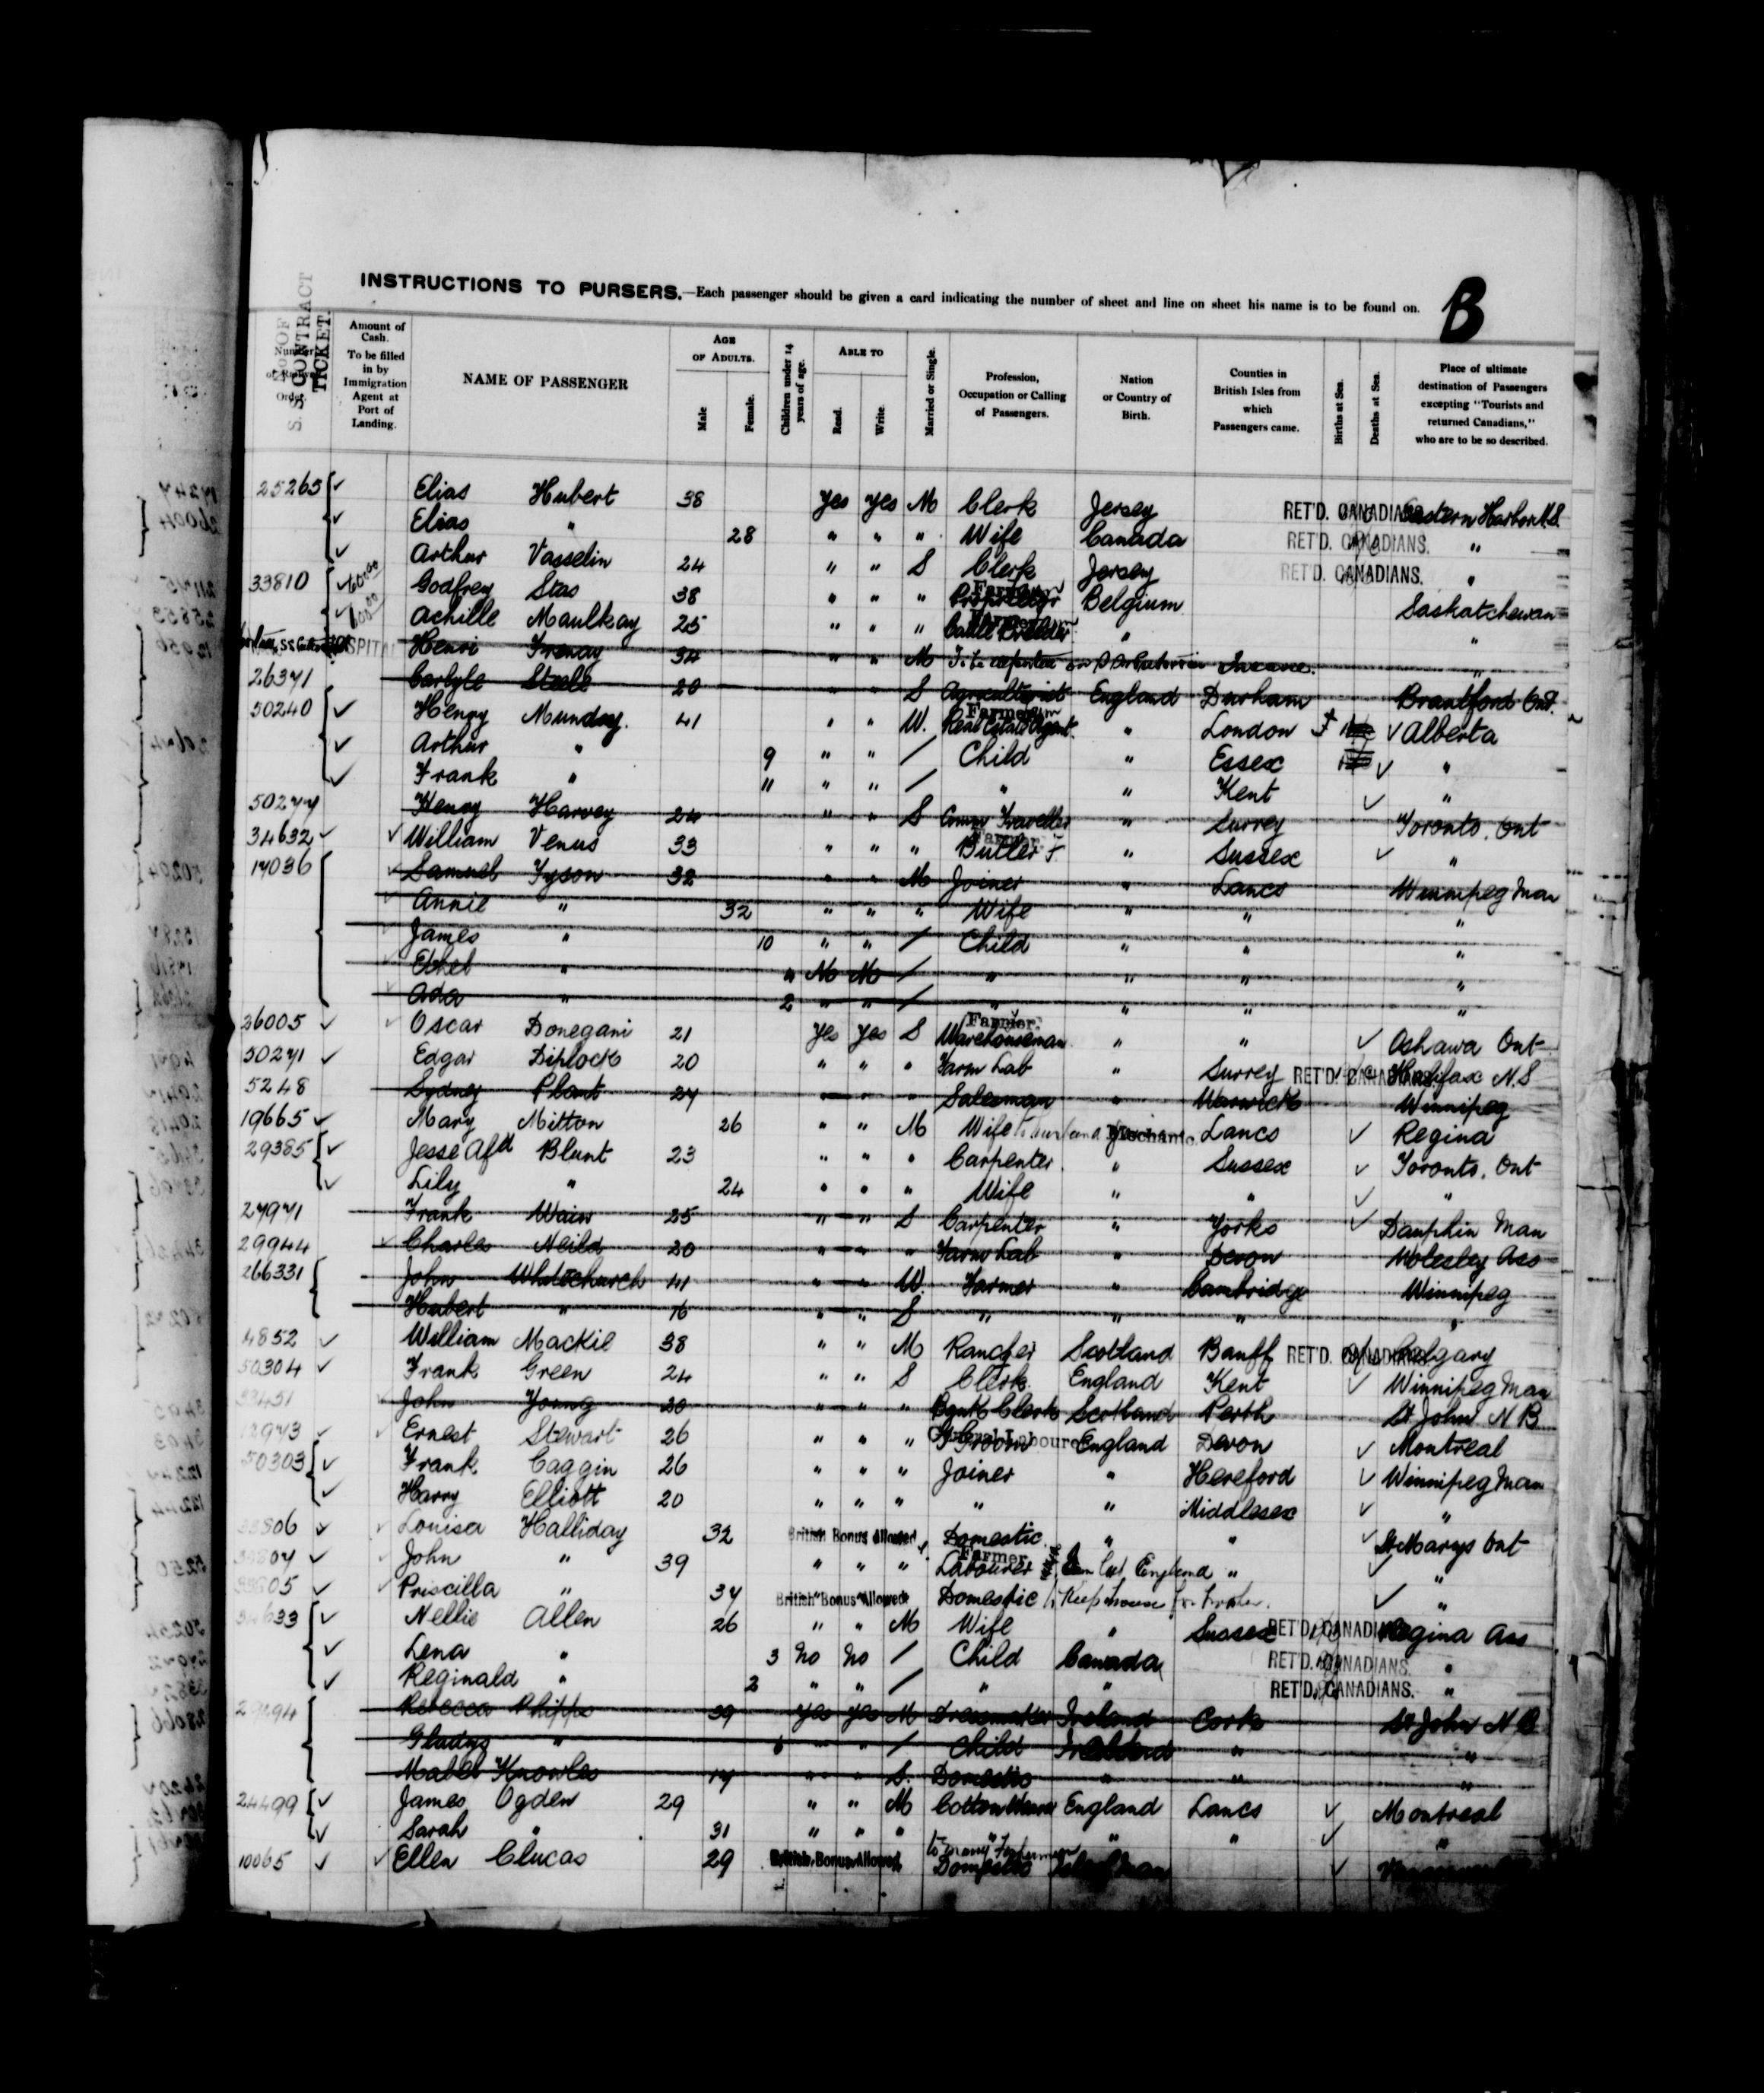 INSTRUCTIONS TO PURSERS.—Each passenger should be given a card indicating the number of sheet and line on sheet his name is to be found on. B
S.S. CONTRACT TICKET.
Amount of Cash. To be filled in by Immigration Agent at Port of Landing.
NAME OF PASSENGER
AGE OF ADULTS. Male Female.
Children under 14 years of age.
ABLE TO Read. Write.
Married or Single.
Profession, Occupation or Calling of Passengers.
Nation or Country of Birth.
Counties in British Isles from which Passengers came.
Births at Sea.
Deaths at Sea.
Place of ultimate destination of Passengers excepting "Tourists and returned Canadians," who are to be so described.
25265 Elias Hubert 38 yes yes M Clerk Jersey RET'D. CANADIANS. Eastern Harbor N.S.
Elias " 28 " " " Wife Canada RET'D. CANADIANS. "
Arthur Vasselin 24 " " S Clerk Jersey RET'D. CANADIANS. "
33810 Godfrey Stas 38 " " " Farmer Belgium Saskatchewan
Achille Maulkay 25 " " " Cattle Breeder " "
Henri Frenay 34 " " M To be deported Insane. "
26371 Carlyle Steele 20 " " S Agriculturist England Durham Brantford Ont.
50240 Henry Munday. 41 " " W. Farmer Real Estate Agent. " London Alberta
Arthur " 9 " " / Child " Essex "
Frank " 11 " " / " " Kent "
50277 Henry Harvey 24 " " S Comm Traveller " Surrey Toronto. Ont
34632 William Venus 33 " " " Farmer. Butler " Sussex "
17036 Samuel Tyson 32 " " M Joiner " Lancs Winnipeg Man
Annie " 32 " " " Wife " " "
James " 10 " " / Child " " "
Ethel " " No No / " " " "
Ada " 2 " " / " " " "
26005 Oscar Donegani 21 yes yes S Farmer. Warehouseman " " Oshawa Ont
50271 Edgar Diplock 20 " " " Farm Lab " Surrey RET'D. CANADIANS. Halifax N.S
5248 Sydney Plant 27 " " " Salesman " Warwick Winnipeg
19665 Mary Mitton 26 " " M Wife Mechanic. Lancs Regina
29385 Jesse Alfd Blunt 23 " " " Carpenter. " Sussex Toronto. Ont
Lily " 24 " " " Wife " " "
27971 Frank Wain 25 " " S Carpenter " Yorks Dauphin Man
29944 Charles Neild 20 " " " Farm Lab " Devon Wolesley Ass
266331 John Whitechurch 41 " " W. Farmer " Cambridge Winnipeg
Hubert " 16 " " S " " " "
4852 William Mackie 38 " " M Rancher Scotland Banff RET'D. CANADIANS. Calgary
50304 Frank Green 24 " " S Clerk England Kent Winnipeg Man
33451 John Young 20 " " " Bank Clerk Scotland Perth St John N B
12973 Ernest Stewart 26 " " " General Labourer Groom England Devon Montreal
50303 Frank Caggin 26 " " " Joiner " Hereford Winnipeg Man
Harry Elliott 20 " " " " " Middlesex "
33806 Louisa Halliday 32 British Bonus Allowed Domestic. " " St Marys Ont
John " 39 " " " Farmer Labourer England " "
Priscilla " 34 British Bonus Allowed Domestic to Keep house for brother. "
34633 Nellie Allen 26 " " M Wife " Sussex RET'D. CANADIANS. Regina Ass
Lena " 3 No No / Child Canada RET'D. CANADIANS. "
Reginald " 2 " " / " " RET'D. CANADIANS. "
Rebecca Phipps 39 yes yes M Dressmaker Ireland Cork St John N B
Gladys " 6 " " / Child " "
Mabel Knowles 17 " " S. Domestic " " "
24499 James Ogden 29 " " M Cotton Weaver England Lancs Montreal
Sarah " 31 " " " " " " "
10065 Ellen Clucas 29 British Bonus Allowed to marry Fisherman Domestic Isle of Man